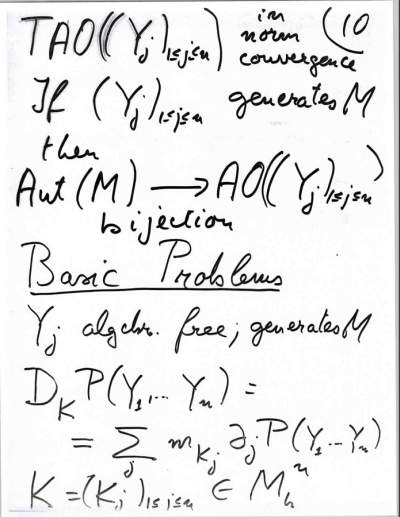 TAO((Yⱼ)₁≤ⱼ≤ₙ) in norm convergence (10
If (Yⱼ)₁≤ⱼ≤ₙ generates M
then
Aut(M) ⟶ AO((Yⱼ)₁≤ⱼ≤ₙ)
bijection
Basic Problems
Yⱼ algebr. free; generates M
D_K P(Y₁,... Yₙ) =
= ∑ⱼ m_{Kⱼ} ∂ⱼ P(Y₁...Yₙ)
K = (Kⱼ)₁≤ⱼ≤ₙ ∈ Mₕⁿ